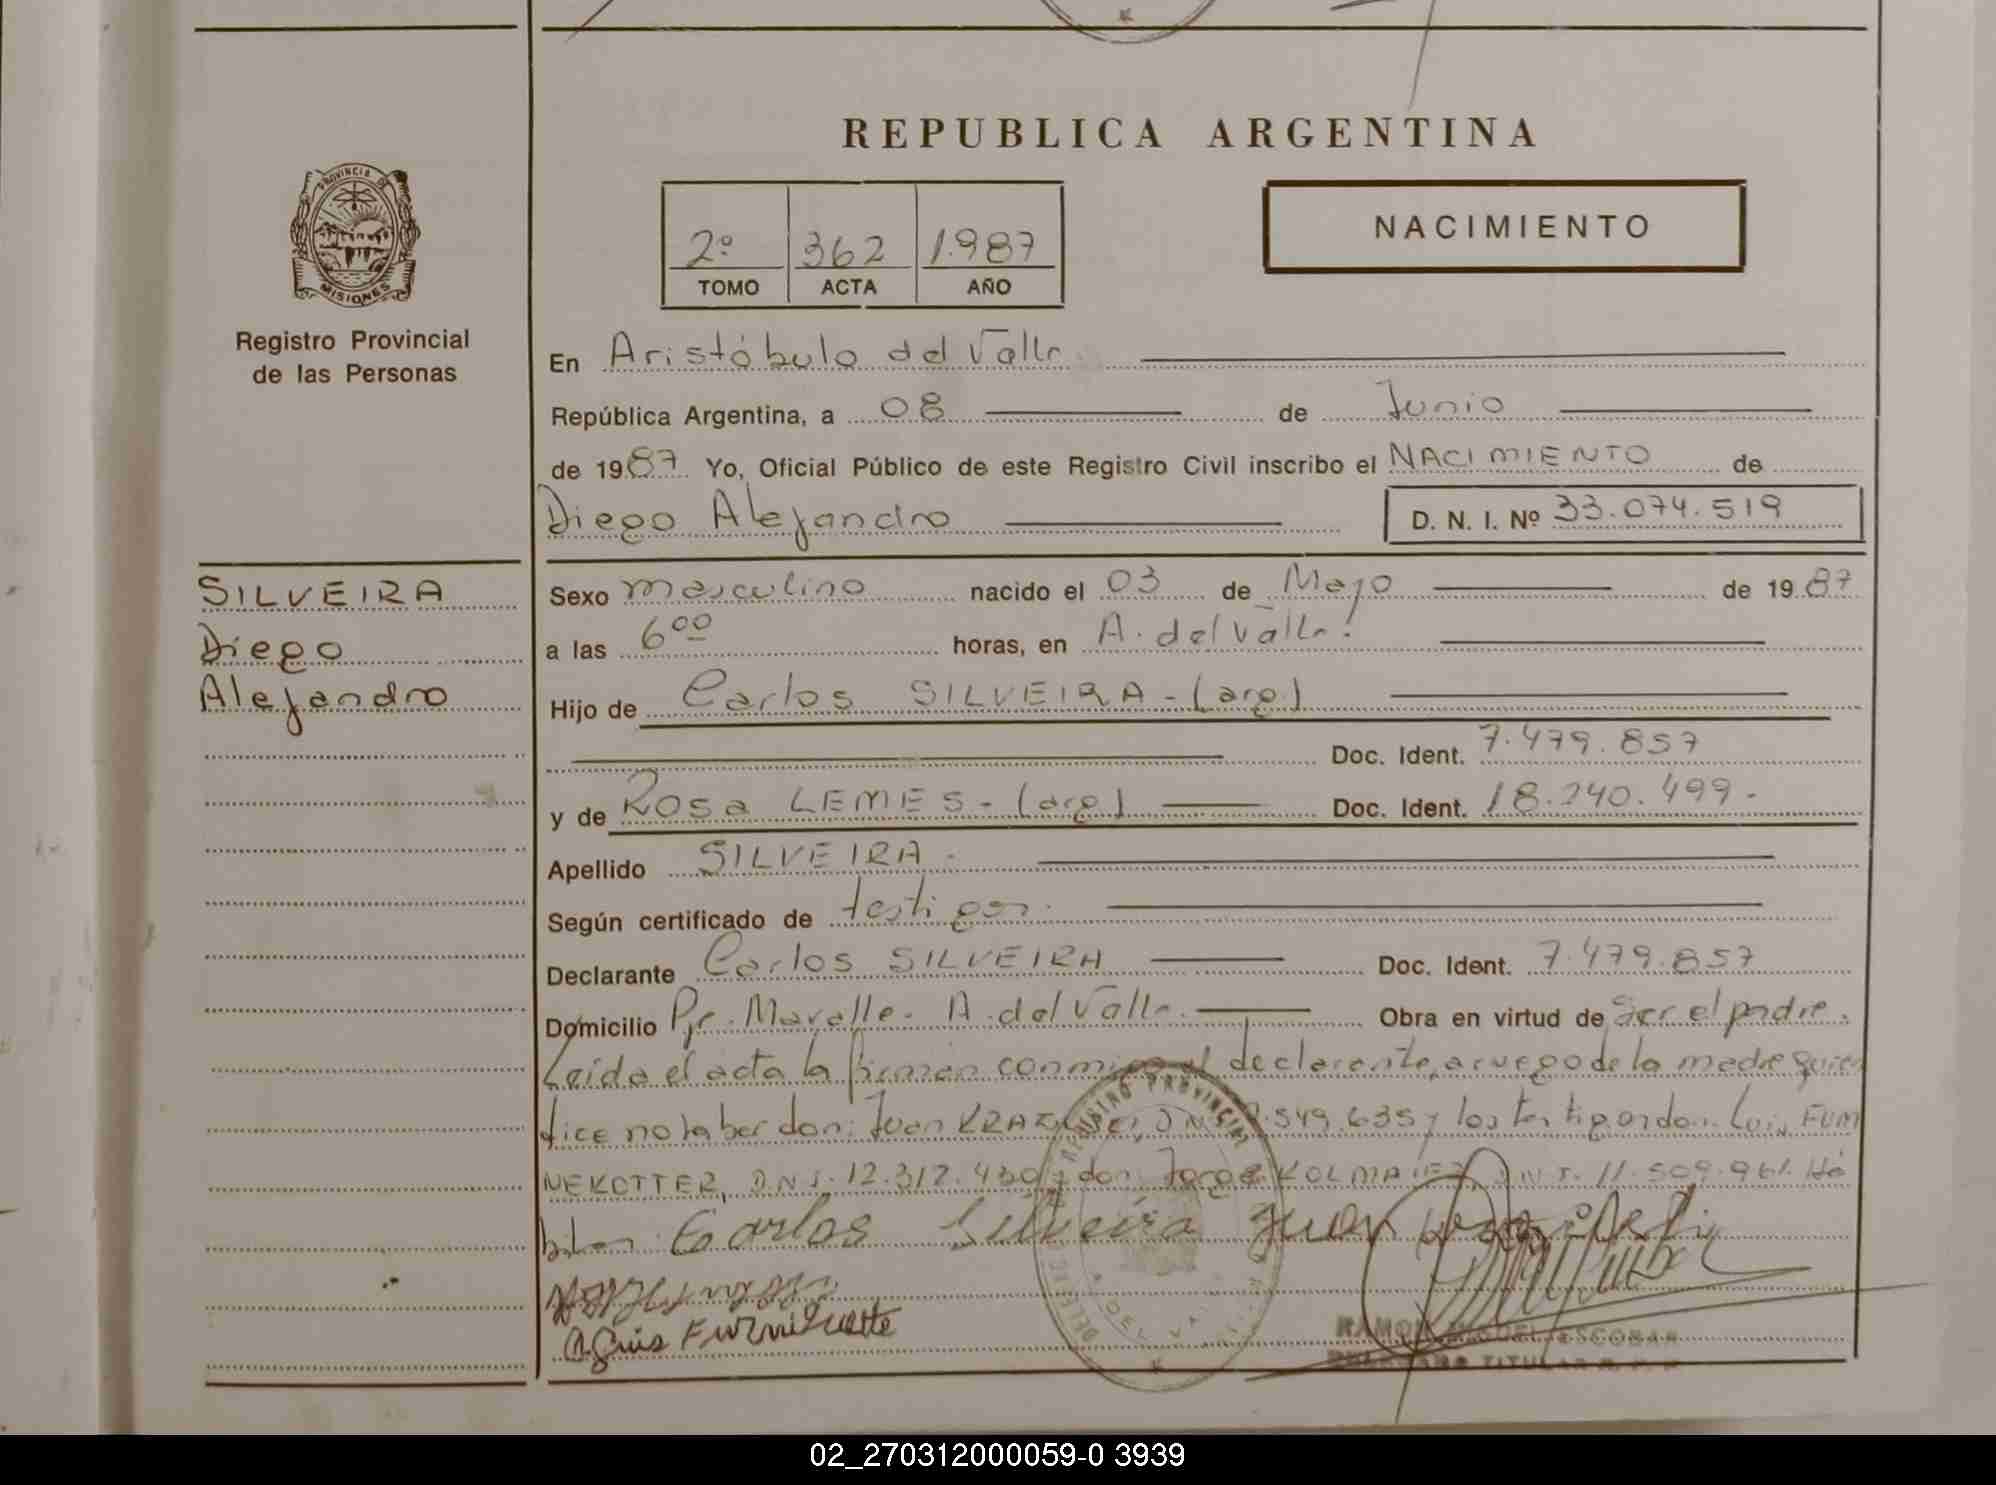 REPUBLICA ARGENTINA
PROVINCIA DE
MISIONES
Registro Provincial
de las Personas
2º 362 1.987
TOMO ACTA AÑO
NACIMIENTO
En Aristóbulo del Valle
República Argentina, a 08 de Junio
de 1987 Yo, Oficial Público de este Registro Civil inscribo el NACIMIENTO de
Diego Alejandro D. N. I. Nº 33.074.519
SILVEIRA
Diego
Alejandro
Sexo masculino nacido el 03 de Mayo de 1987
a las 6⁰⁰ horas, en A. del Valle.
Hijo de Carlos SILVEIRA - (arg)
Doc. Ident. 7.479.857
y de Rosa LEMES - (arg) Doc. Ident. 18.240.499.-
Apellido SILVEIRA.-
Según certificado de testigos.
Declarante Carlos SILVEIRA Doc. Ident. 7.479.857
Domicilio A. del Valle. Obra en virtud de Ser el padre.
Leída el acta la firman conmigo el declarante, a ruego de la madre quien
dice no saber don: Juan .549.635 y los testigos don: Luis FUM
NEKOTTER, D.N.I. 12.312.430 y don Jorge D.N.I. 11.509.961. Há
biles. Carlos Silveira Juan
REGISTRO PROVINCIAL
A. DEL VALLE
RAMON MIGUEL ESCOBAR
TITULAR
02_270312000059-0 3939